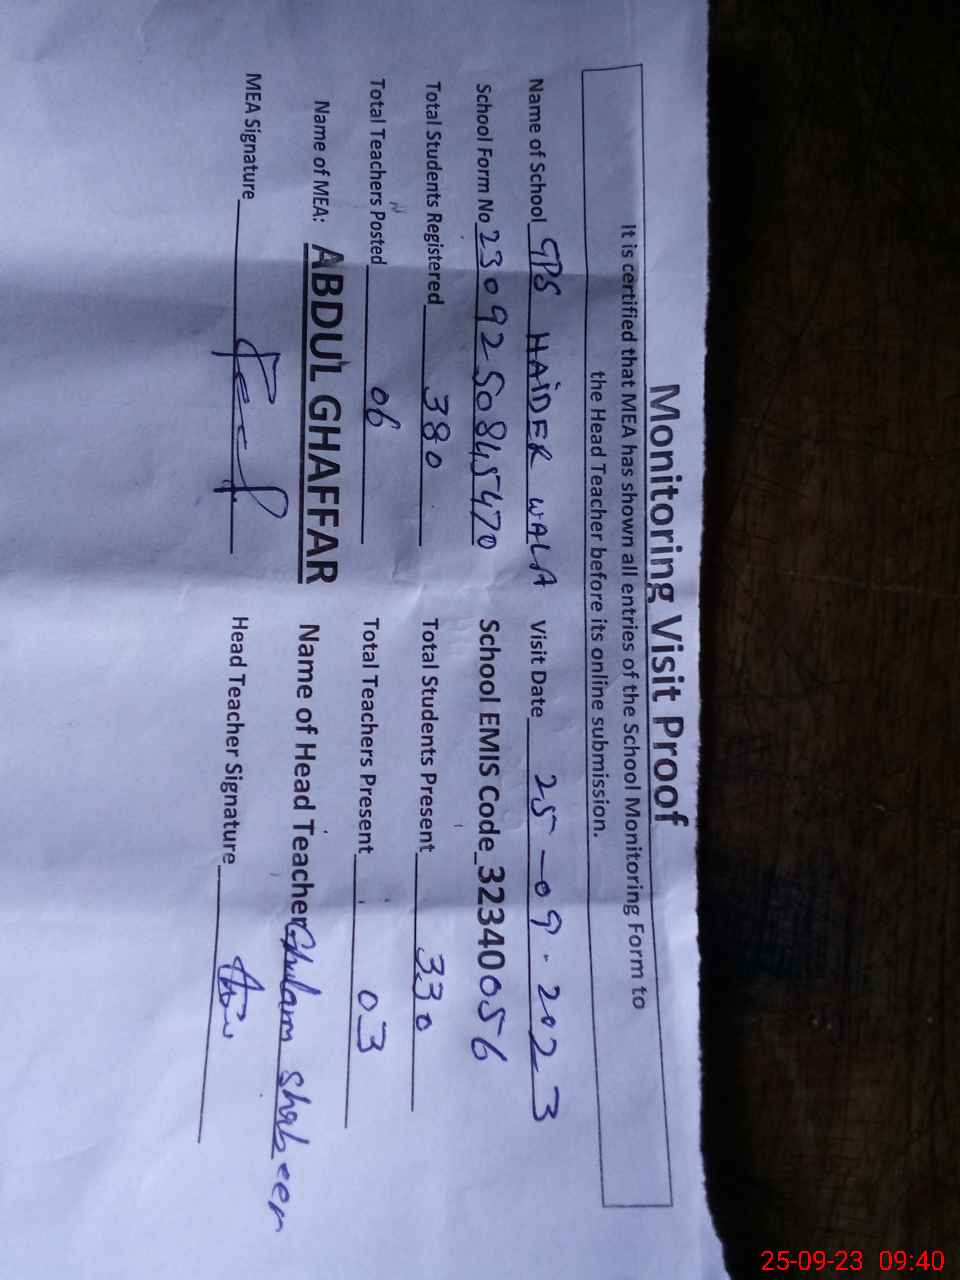 Monitoring Visit Proof
It is certified that MEA has shown all entries of the School Monitoring Form to
the Head Teacher before its online submission.
Name of School GPS HAIDER WALA Visit Date 25-09-2023
School Form No 2309250845470 School EMIS Code_32340056
Total Students Registered 380 Total Students Present 330
Total Teachers Posted 06 Total Teachers Present 03
Name of MEA: ABDUL GHAFFAR Name of Head Teacher Ghulam Shabeer
MEA Signature Head Teacher Signature
25-09-23 09:40